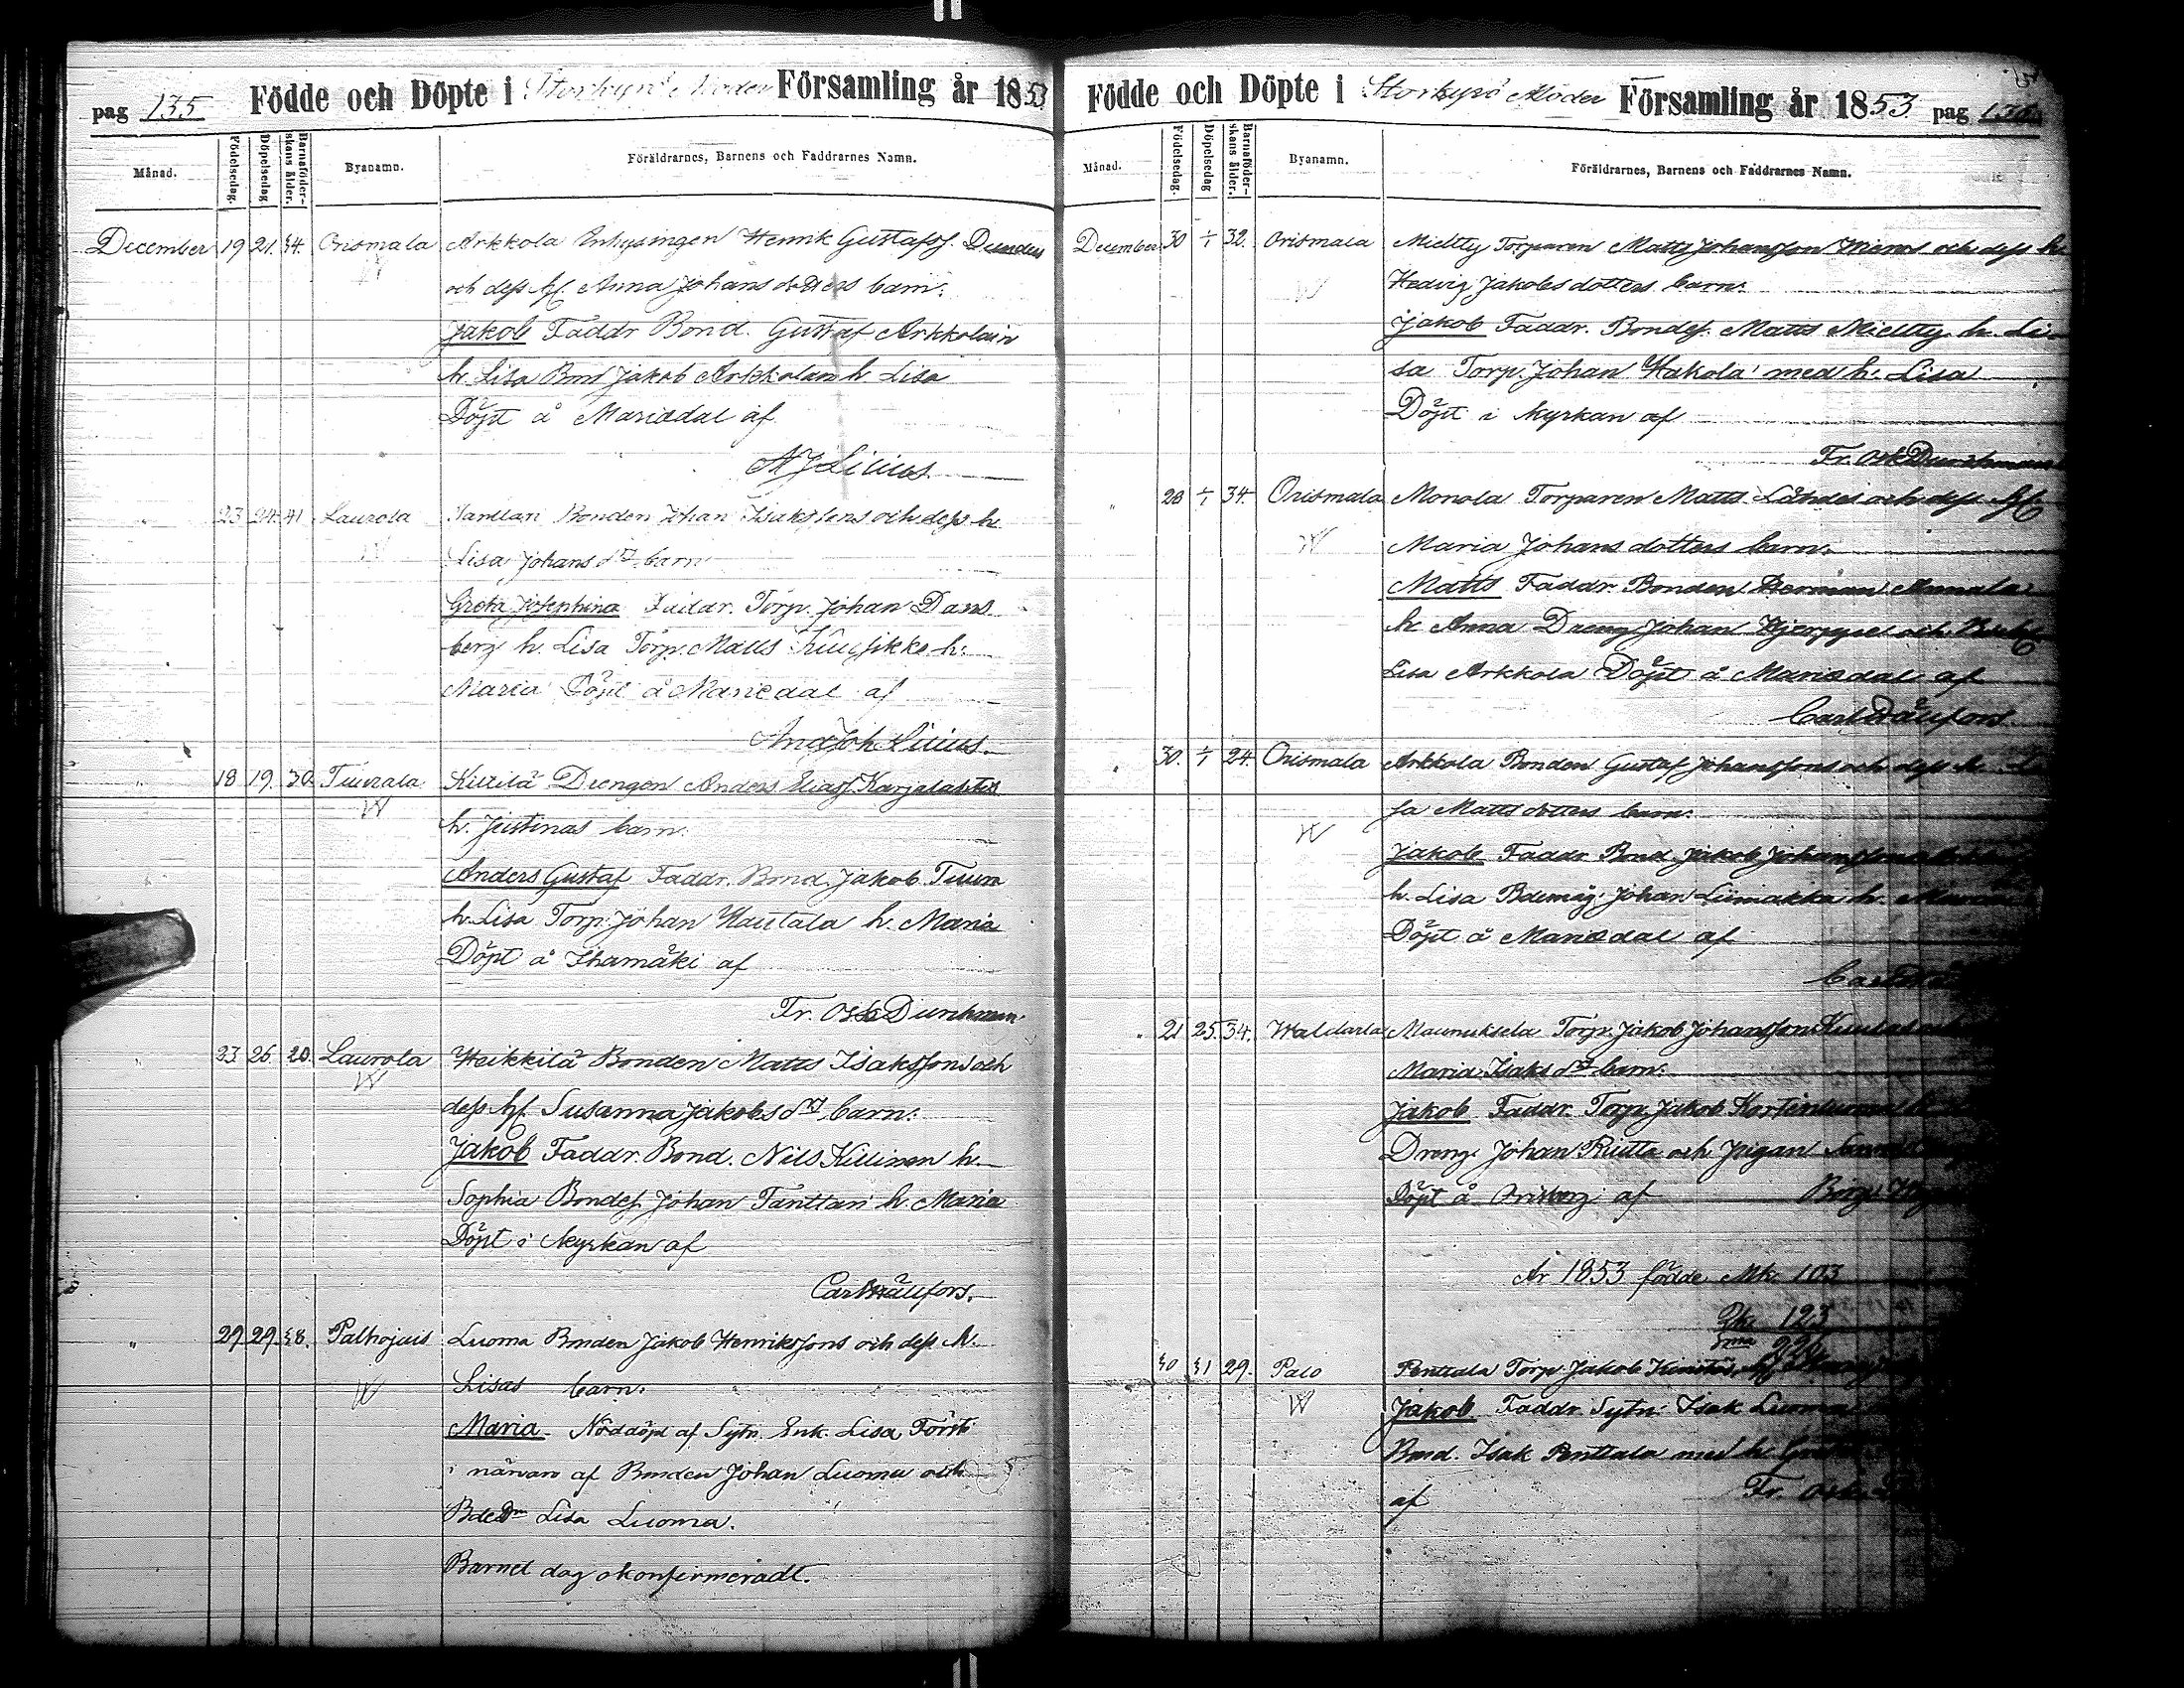 pag 135 Födde och Döpte i Storkyrö Moder Församling år 1853
Månad. Födelsedag. Döpelsedag. Barnaföderskans ålder. Byanamn. Föräldrarnes, Barnens och Faddrarnes Namn.
December 19 21. 34. Orismala Arkkola Inhysingen Henrik Gustafss.
och dess hf. Anna Johansdotters barn:
Jakob Faddr Bond. Gustaf Arkkola
h. Lisa Bond Jakob Arkkola h Lisa
Döpt å Mariedal af
A J Lilius
" 23 24. 41 Laurola Tanttari Bonden Johan Isakssons och dess h.
Lisa Johans dr barn
Greta Josephina Faddr. Torp. Johan Dans
berg h. Lisa Torp. Matts h.
Maria Döpt å Mariedal af
And Joh Lilius.
" 18 19. 30. Tuurala Killilä Drengen Anders Eliass. Karjalahtis
h. Justinas barn:
Anders Gustaf Faddr. Bond. Jakob Tuura
h. Lisa Torp. Johan Hautala h. Maria
Döpt å Ihamäki af
Fr. Osk Durchman
" 23 26. 20. Laurola Heikkilä Bonden Matts Isakssons och
dess hf. Susanna Jakobs dr barn:
Jakob Faddr. Bond. Nils Killinen h.
Sophia Bondes. Johan Tanttari h. Maria
Döpt i Kyrkan af
Carl Dålfors.
" 29 29. 38. Palhojais Luoma Bonden Jakob Henrikssons och dess h.
Lisas barn:
Maria Nöddöpt af Sytn. Enk. Lisa Försti
i närvaro af Bonden Johan Luoma och
Bdedr Lisa Luoma.
Barnet dog okonfirmeradt.
Födde och Döpte i Storkyrö Moder Församling år 1853 pag 136
Månad. Födelsedag. Döpelsedag Barnaföderskans ålder. Byanamn. Föräldrarnes, Barnens och Faddrarnes Namn.
December 30 1/1 32. Orismala Mieltty Torparen Matts Johansson och dess h.
Hedvig Jakobsdotters barn:
Jakob Faddr. Bondes. Matts Mieltty h. Li-
sa Torp. Johan Hakola med h. Lisa
Döpt i Kyrkan af
Fr. Osk Durchman
" 28 1/1 34. Orismala Monola Torparen Matts och dess hf
Maria Johans dotters barn:
Matts Faddr. Bonden Herman Annala
h. Anna Dreng Johan Hjerppe och
Lisa Arkkola Döpt å Mariedal af
Carl Dålfors
" 30. 1/1 24. Orismala Arkkola Bonden Gustaf Johanssons och dess h. Li
sa Mattsdotters barn:
Jakob Faddr Bond. Jakob Johansson
h. Lisa Bdemåg: Johan Liimakka h. Maria
Döpt å Mariedal af
Carl
" 21 25. 34. Waldarla Maunuksela Torp. Jakob Johansson
Maria Isaks dr barn:
Jakob Faddr. Torp. Jakob
Dreng. Johan Riitta och Pigan
Döpt å Orisberg af
År 1853 födde Mk. 103
Qk. 123
Sma 226
30 31 29. Palo Penttala Torp. Jakob
Jakob Faddr. Sytn. Isak Luoma
Bond. Isak Penttala med h.
af Fr. Osk.